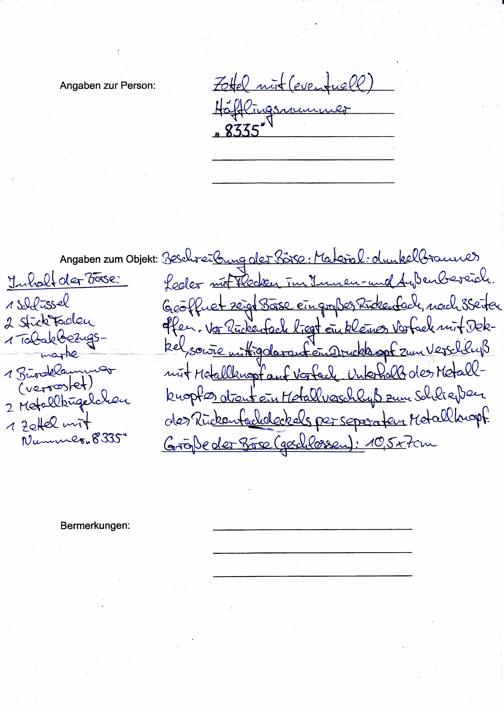 Angaben zur Person:
Zettel mit (eventuell)
Häftlingsnummer
"8335"
Angaben zum Objekt:
Beschreibung der Börse: Material: dunkelbraunes
Leder mit Flecken im Innen- und Außenbereich.
Geöffnet zeigt Börse ein großes Rückenfach, nach 3 Seiten
offen. Vor Rückenfach liegt ein kleines Vorfach mit Dek-
kel, sowie mittig darauf ein Druckknopf zum Verschluß
mit Metallknopf auf Vorfach. Unterhalb des Metall-
knopfes dient ein Metallverschluß zum Schließen
des Rückenfachdeckels per separatem Metallknopf.
Größe der Börse (geschlossen): 10,5x7cm
Inhalt der Börse:
1 Schlüssel
2 Stick Faden
1 Tabakbezugs-
marke
1 Büroklammer
(verrostet)
2 Metallkügelchen
1 Zettel mit
Nummer "8335"
Bermerkungen: